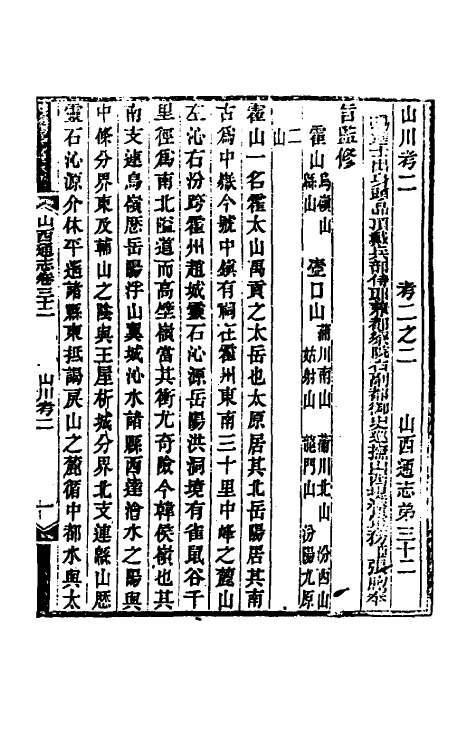 山川考二 考二之二 山西通志第三十二
士出身頭品頂戴兵部侍郎兼都察院右副都御史巡撫山西
旨監修
霍山 烏嶺山 綿山 壺口山 蒲川南山 姑射山 蒲川北山 龍門山 汾西山 汾陽九原
二山
霍山一名霍太山禹貢之太岳也太原居其北岳陽居其南
古爲中嶽今號中嶺有祠在霍州東南三十里中峰之麓山
左沁右汾跨霍州趙城靈石沁源岳陽洪洞境有雀鼠谷千
里徑爲南北隘道而高壁嶺當其衝尤奇險今韓侯嶺也其
南支連烏嶺歷岳陽浮山翼城沁水諸縣西達澮水之陽與
中條分界東及輔山之陰與王屋析城分界北支連緜山歷
靈石沁源介休平遙諸縣東抵謁戾山之麓循中都水與太
山西通志卷三十二 山川考二 一